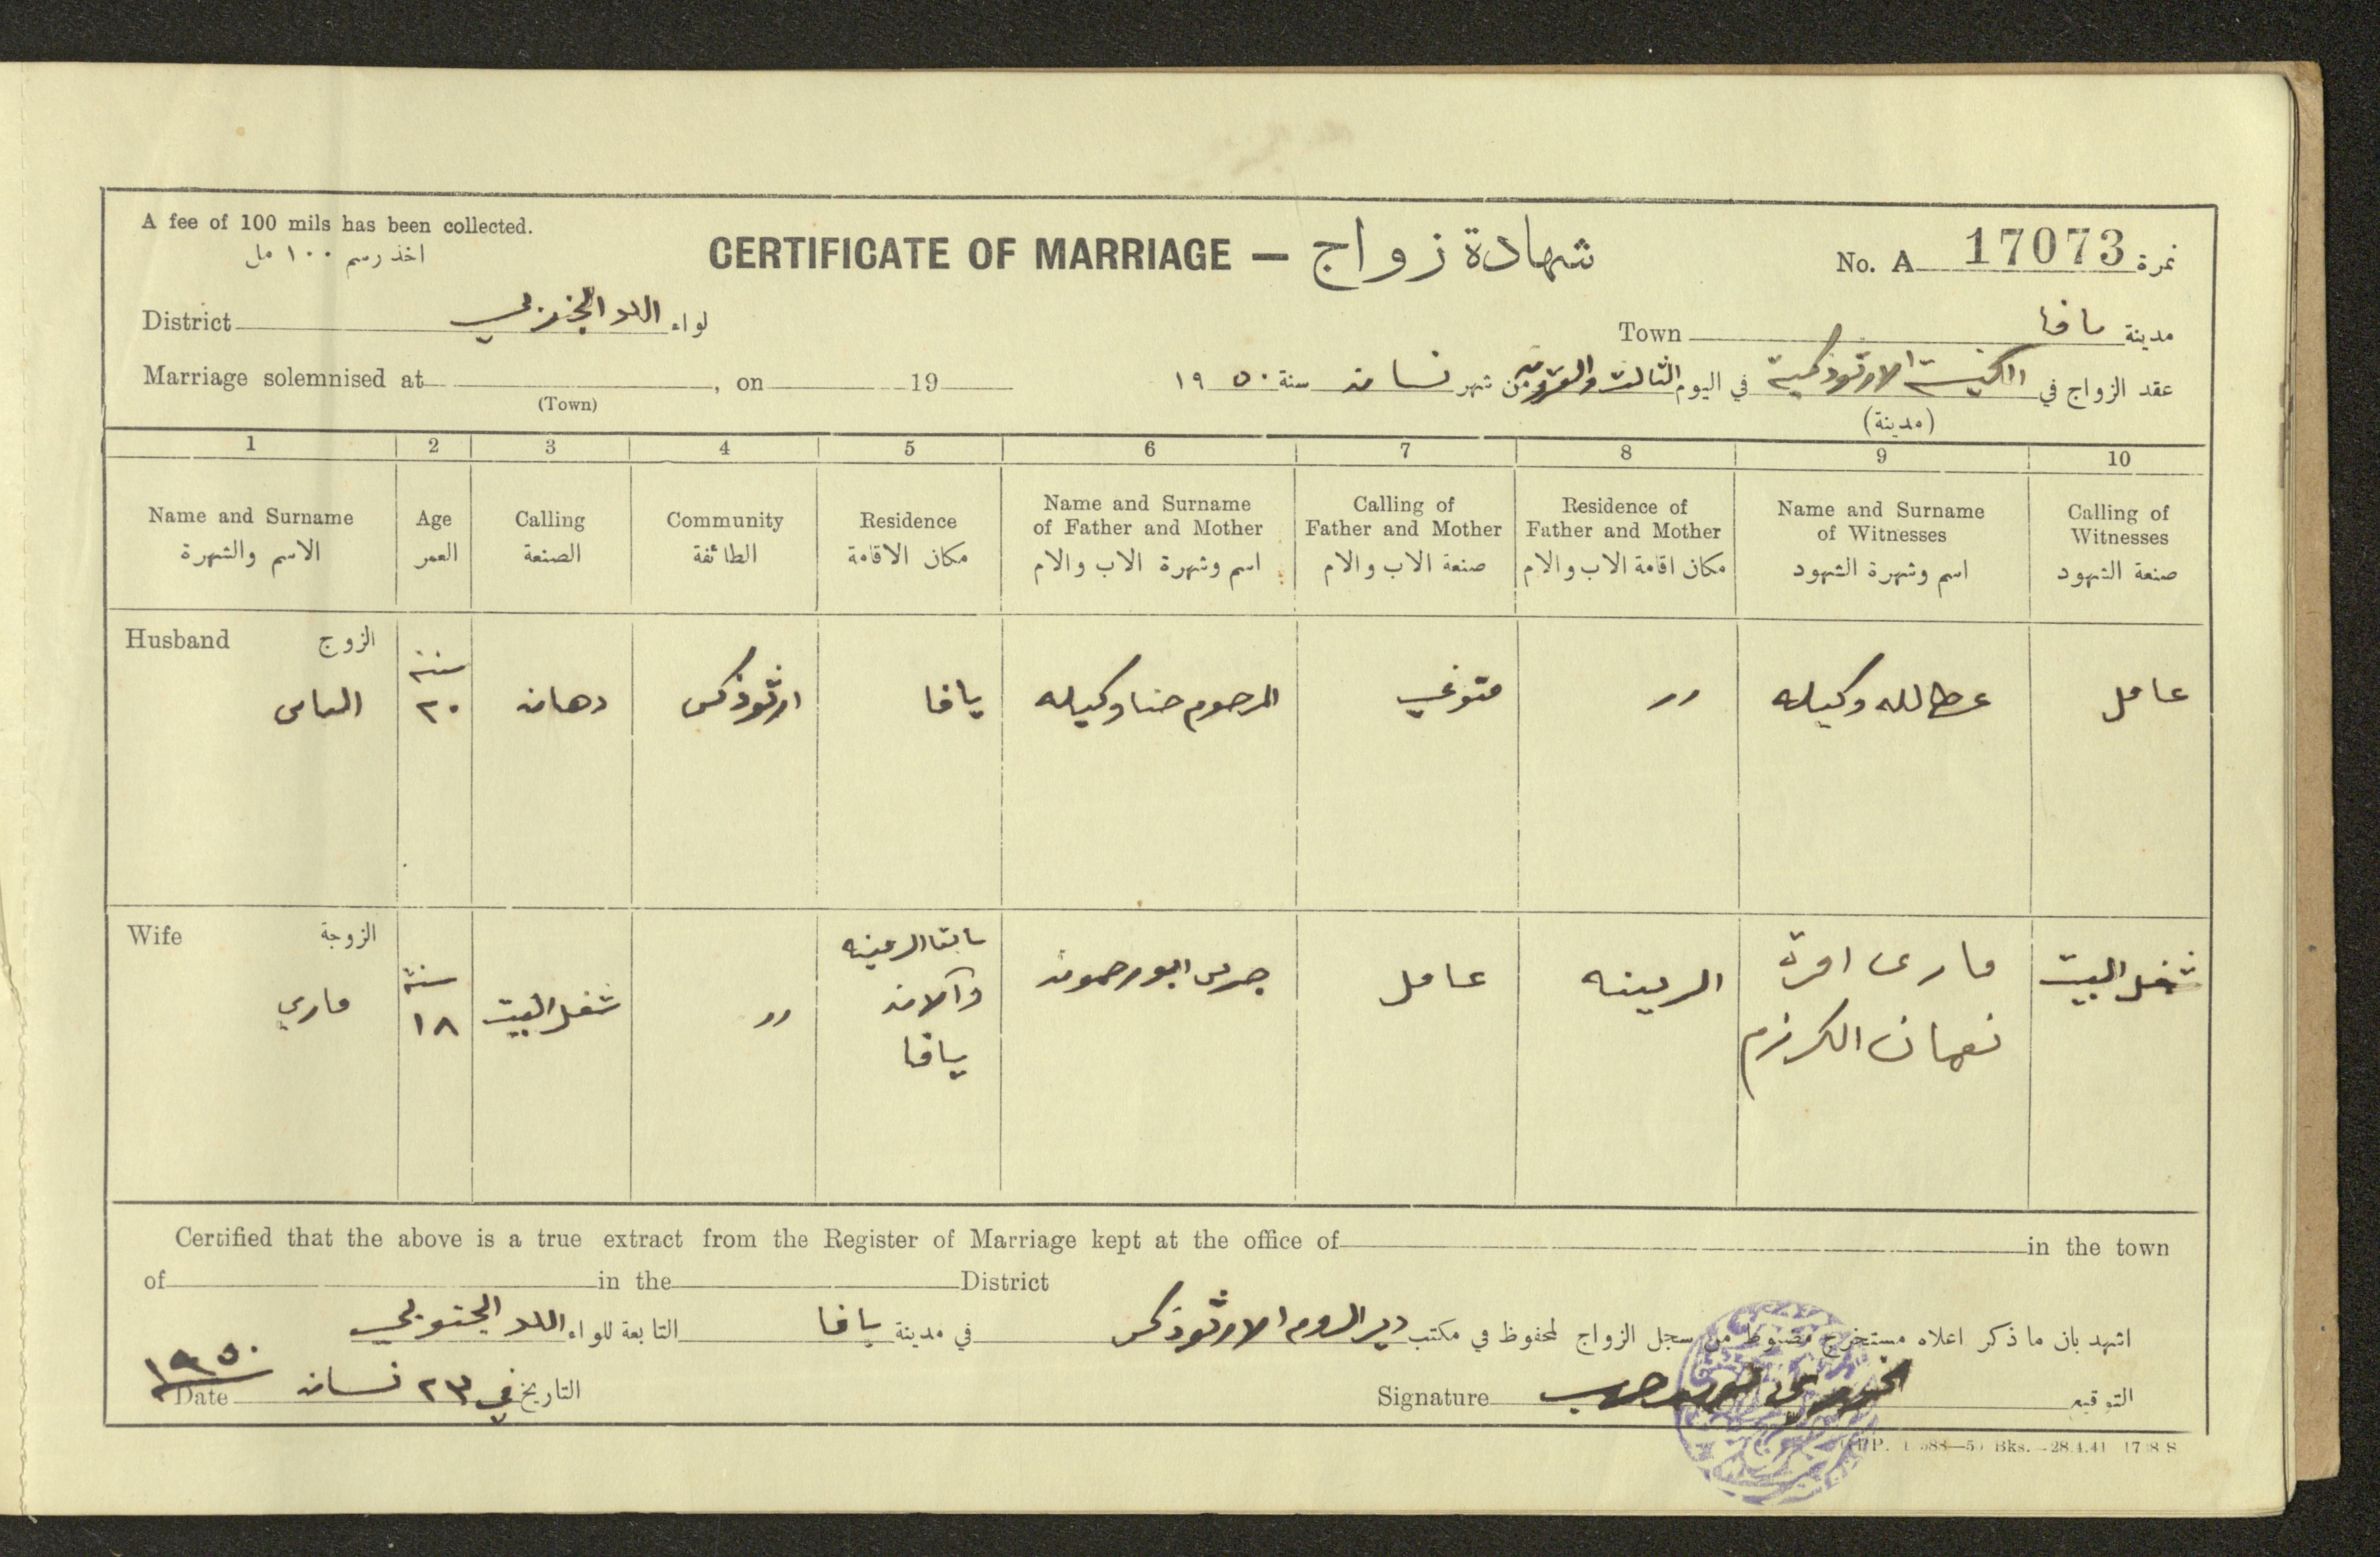 A fee of 100 mils has been collected.
اخذ رسم ١٠٠ مل
CERTIFICATE OF MARRIAGE — شهادة زواج
No. A 17073 نمرة
District اللد الجنوبي لواء
Town يافا مدينة
Marriage solemnised at , on 19
(Town)
عقد الزواج في الكنيسة الارثوذكسية في اليوم الثالث والعشرون من شهر نسان سنة ١٩٥٠
(مدينة)
1 2 3 4 5 6 7 8 9 10
Name and Surname
الاسم والشهرة
Age
العمر
Calling
الصنعة
Community
الطائفة
Residence
مكان الاقامة
Name and Surname
of Father and Mother
اسم وشهرة الاب والام
Calling of
Father and Mother
صنعة الاب والام
Residence of
Father and Mother
مكان اقامة الاب والام
Name and Surname
of Witnesses
اسم وشهرة الشهود
Calling of
Witnesses
صنعة الشهود
Husband الزوج
الياس
سنة
٢٠
دهان
ارثوذكس
يافا
المرحوم حنا وكيله
متوفي
〃
عطالله وكيله
عامل
Wife الزوجة
ماري
سنة
١٨
شغل البيت
〃
سابقا الرينه
والآن
يافا
جريس ابو رحمون
عامل
الرينه
ماري امرة
نعمان الكرزم
شغل البيت
Certified that the above is a true extract from the Register of Marriage kept at the office of in the town
of in the District
اشهد بان ما ذكر اعلاه مستخرج مضبوط من سجل الزواج المحفوظ في مكتب دير الروم الارثوذكس في مدينة يافا التابعة للواء اللد الجنوبي
التوقيع Signature الخوري
التاريخ في ٢٣ نسان ١٩٥٠ Date